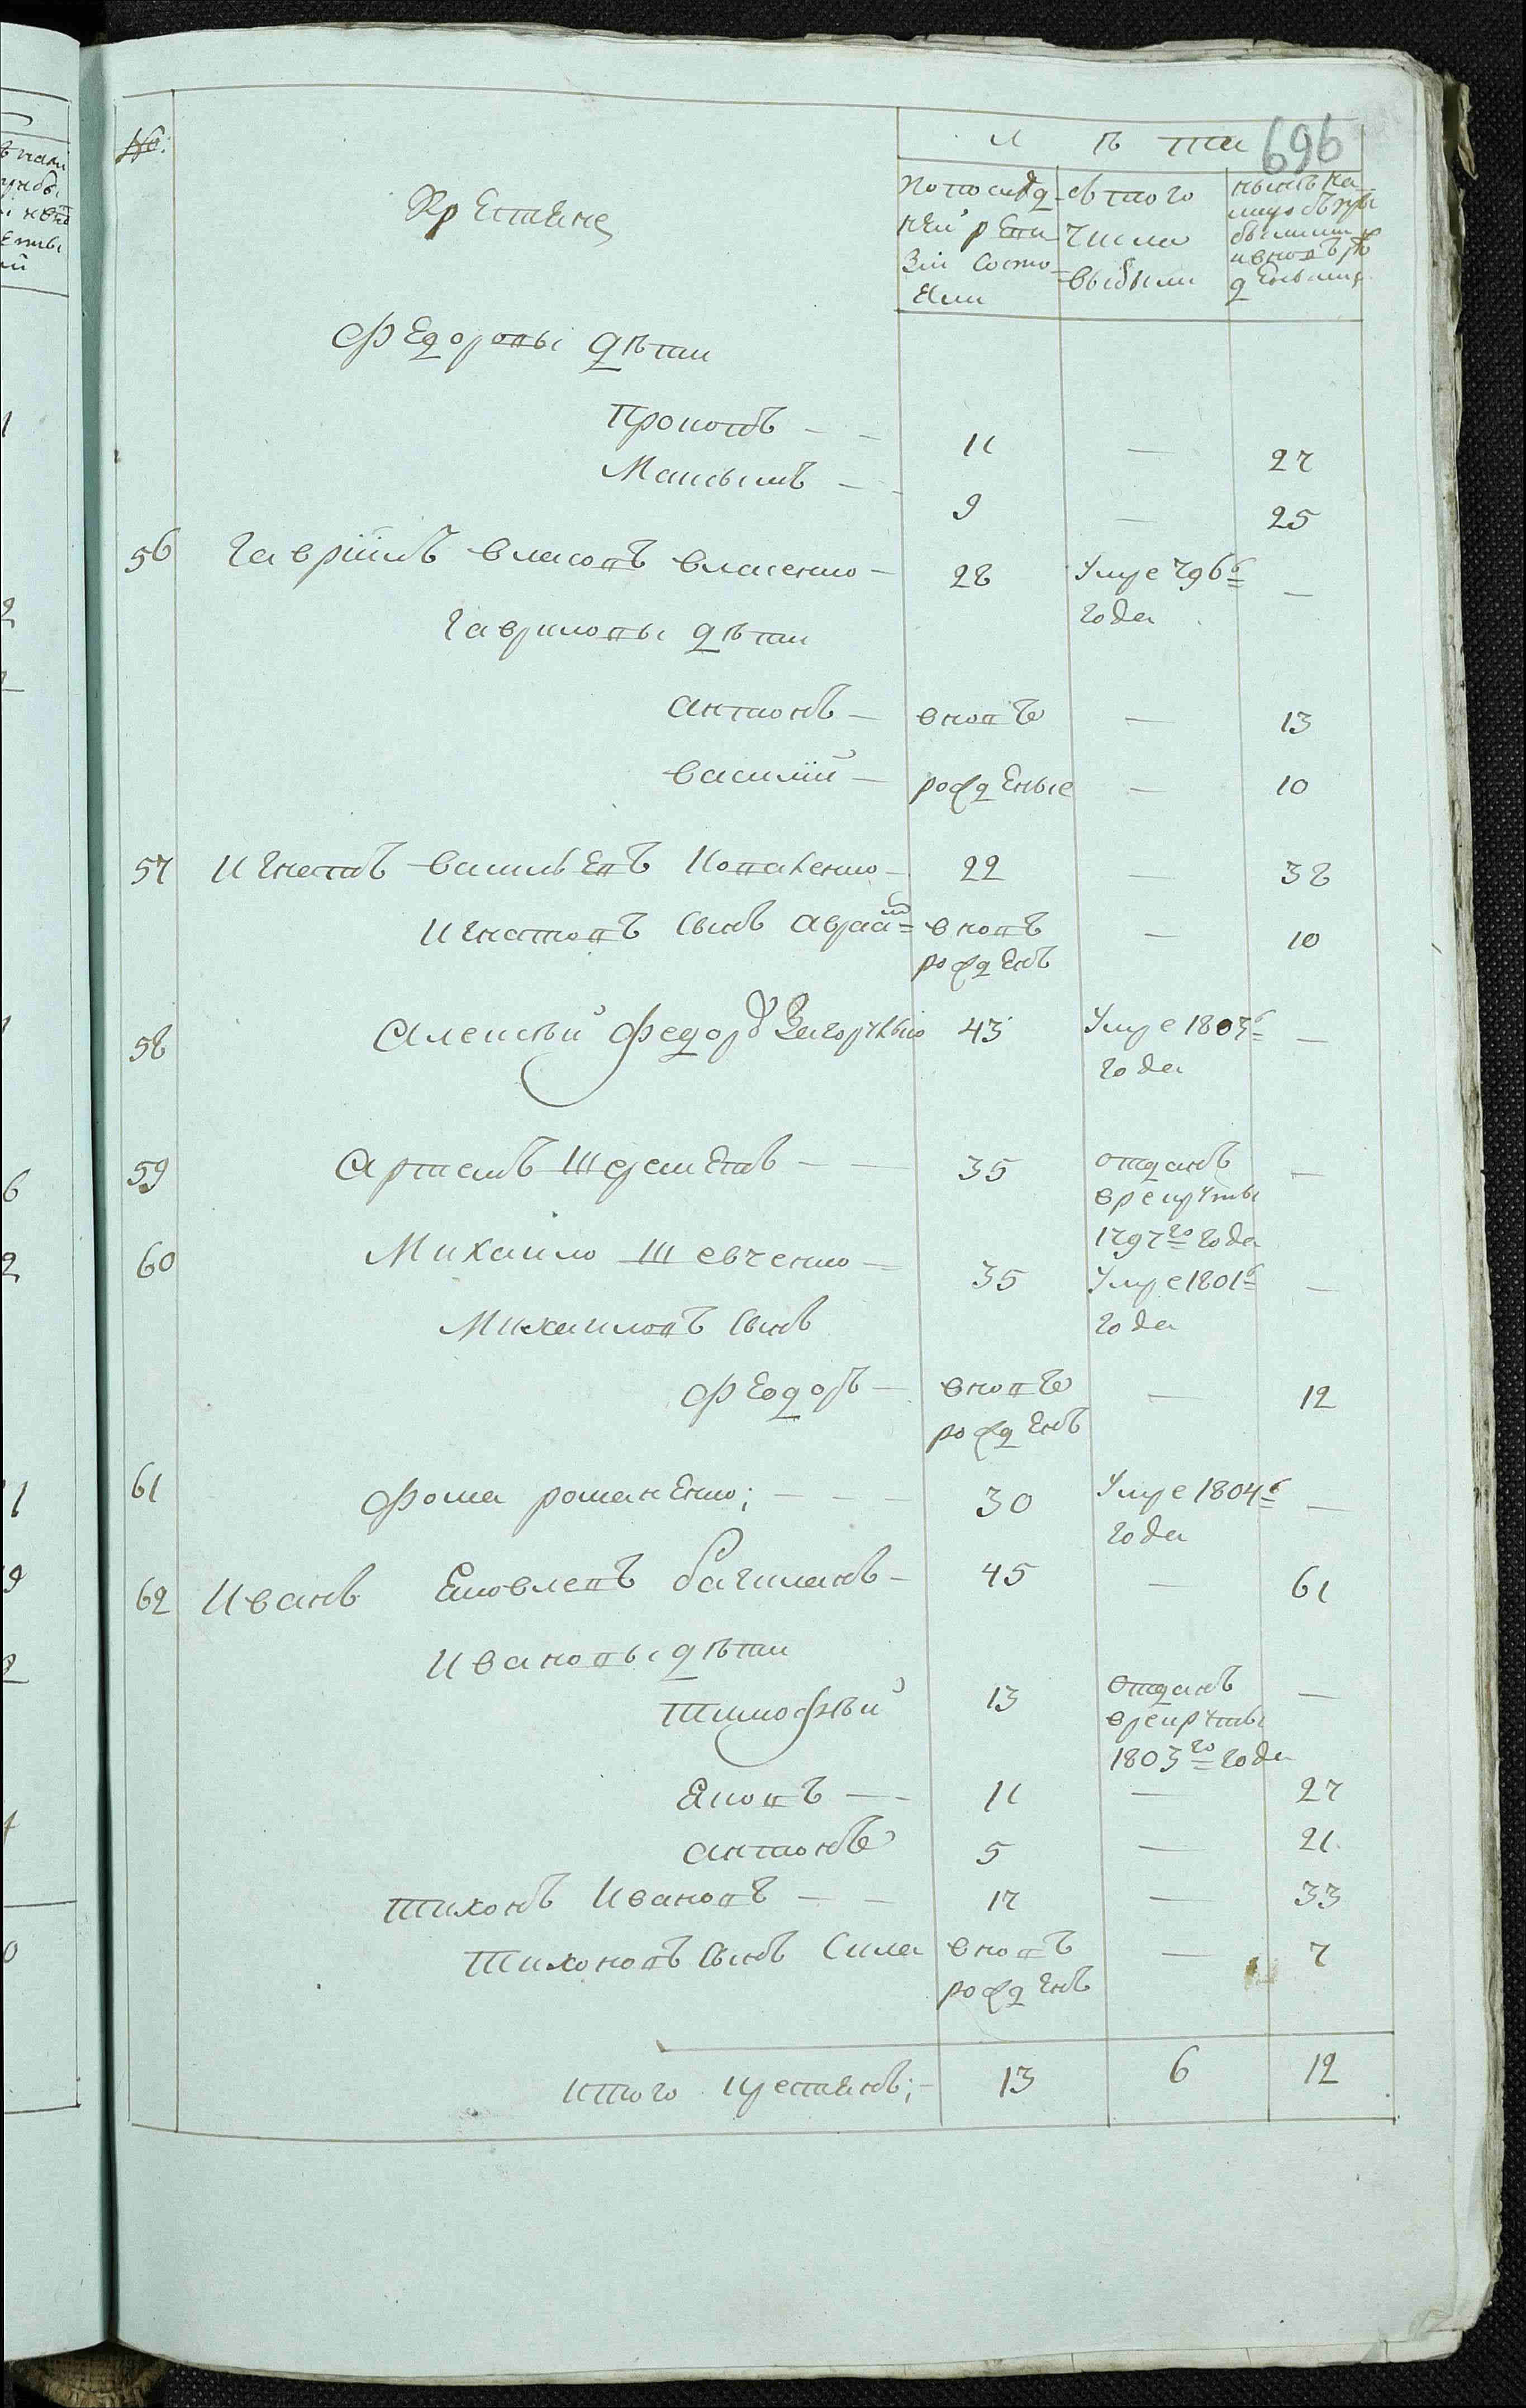 696
№:
Крестьяне
Лѣта
По последней ревизии состояли
с того числа выбыли
Федоровы дѣти
Прокопъ — — 11 — 27
Максимъ — — 9 — 25
56 Гаврiилъ Власовъ Власенко — 28 Умре 796г —
года
Гавриловы дѣти
Антонъ — вновъ — 13
Василiй — рожденые — 10
57 Игнатъ Васильевъ — 22 — 38
Игнатовъ сынъ Аврам = вновъ — 10
рожденъ
58 Алексѣй Федоръ 43 Умре 1803г —
года
59 Артемъ — — 35 отданъ —
врекруты
1797го года
60 Михаило Шевченко — 35 Умре 1801г —
года
Михаиловъ сынъ
Феодоръ — вновъ — 12
рожденъ
61 Фома Романенко; — — — 30 Умре 1804г —
года
62 Иванъ Яковлевъ Бачиланъ — 45 — 61
Ивановы дѣти
Тимофѣй 13 отданъ —
врекруты
1803го года
Яковъ — — 11 — 27
Антонъ 5 — 21
Тихонъ Ивановъ — — 17 — 33
Тихоновъ сынъ Сила вновъ — 7
рожденъ
Итого крестьянъ; — 13 6 12